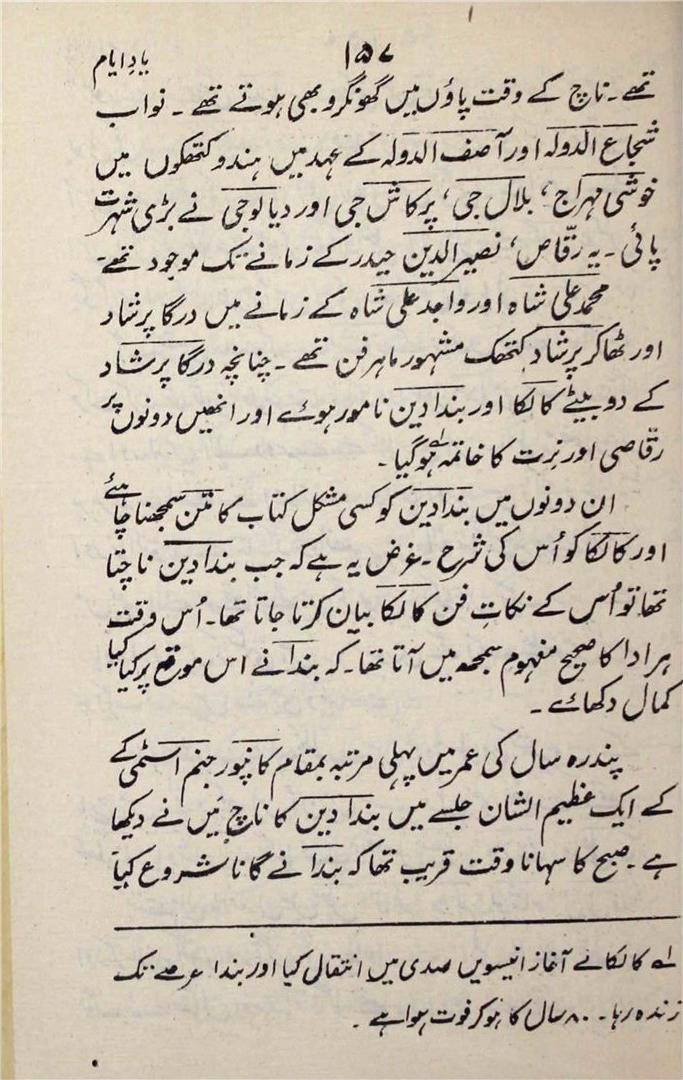 ۱۵۷
یادِ ایام
تھے۔ ناچ کے وقت پاؤں میں گھونگرو بھی ہوتے تھے۔ نواب
شجاع الدولہ اور آصف الدولہ کے عہد میں ہندو کتھکوں میں
خوشی مہراج، ہلال جی، پرکاش جی اور دیالوجی نے بڑی شہرت
پائی۔ یہ رقّاص، نصیر الدین حیدر کے زمانے تک موجود تھے۔
محمد علی شاہ اور واجد علی شاہ کے زمانے میں درگا پرشاد
اور ٹھاکر پرشاد کتھک مشہور ماہر فن تھے۔ چنانچہ درگا پرشاد
کے دو بیٹے کالکا اور بندادین نامور ہوئے اور انھیں دونوں پر
رقّاصی اور نِرت کا خاتمہ ہوگیا۱؎۔
ان دونوں میں بندادین کو کسی مشکل کتاب کا متن سمجھنا چاہئے
اور کالکا کو اُس کی شرح۔ غرض یہ ہے کہ جب بندادین ناچتا
تھا تو اُس کے نکاتِ فن کالکا بیان کرتا جاتا تھا۔ اُس وقت
ہر ادا کا صحیح مفہوم سمجھ میں آتا تھا۔ کہ بندا نے اس موقع پر کیا کیا
کمال دکھائے۔
پندرہ سال کی عمر میں پہلی مرتبہ بمقام کانپور جنم اسٹمی کے
کے ایک عظیم الشان جلسے میں بندا دین کا ناچ مَیں نے دیکھا
ہے۔ صبح کا سہانا وقت قریب تھا کہ بندا نے گانا شروع کیا
۱؎ کالکا نے آغاز انیسویں صدی میں انتقال کیا اور بندا عرصے تک
زندہ رہا۔ ۸۰ سال کا ہو کر فوت ہوا ہے۔